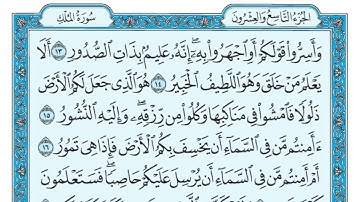 الجزء التاسع والعشرون سورة الملك
وَأَسِرُّوا۟ قَوْلَكُمْ أَوِ ٱجْهَرُوا۟ بِهِۦٓ ۖ إِنَّهُۥ عَلِيمٌۢ بِذَاتِ ٱلصُّدُورِ ١٣ أَلَا
يَعْلَمُ مَنْ خَلَقَ وَهُوَ ٱللَّطِيفُ ٱلْخَبِيرُ ١٤ هُوَ ٱلَّذِى جَعَلَ لَكُمُ ٱلْأَرْضَ
ذَلُولًا فَٱمْشُوا۟ فِى مَنَاكِبِهَا وَكُلُوا۟ مِن رِّزْقِهِۦ ۖ وَإِلَيْهِ ٱلنُّشُورُ ١٥
ءَأَمِنتُم مَّن فِى ٱلسَّمَآءِ أَن يَخْسِفَ بِكُمُ ٱلْأَرْضَ فَإِذَا هِىَ تَمُورُ ١٦
أَمْ أَمِنتُم مَّن فِى ٱلسَّمَآءِ أَن يُرْسِلَ عَلَيْكُمْ حَاصِبًا ۖ فَسَتَعْلَمُونَ